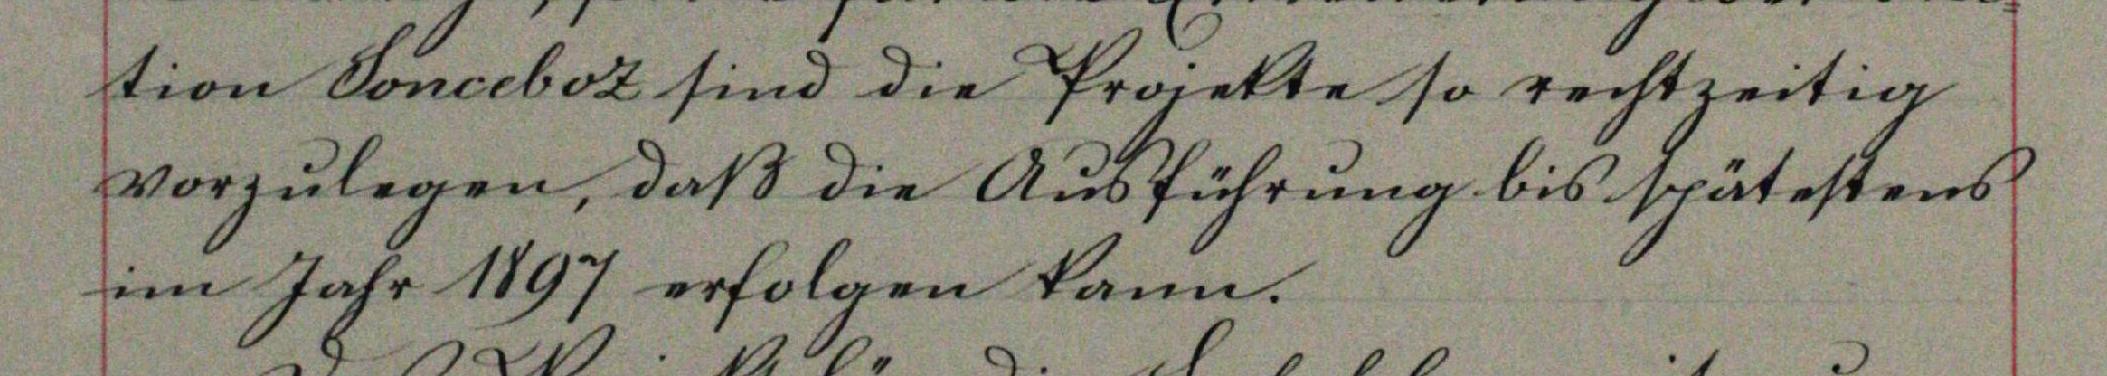 tion Sonceboz sind die Projekte so rechtzeitig
vorzulegen, daß die Ausführung bis spätestens
im Jahr 1897 erfolgen kann.